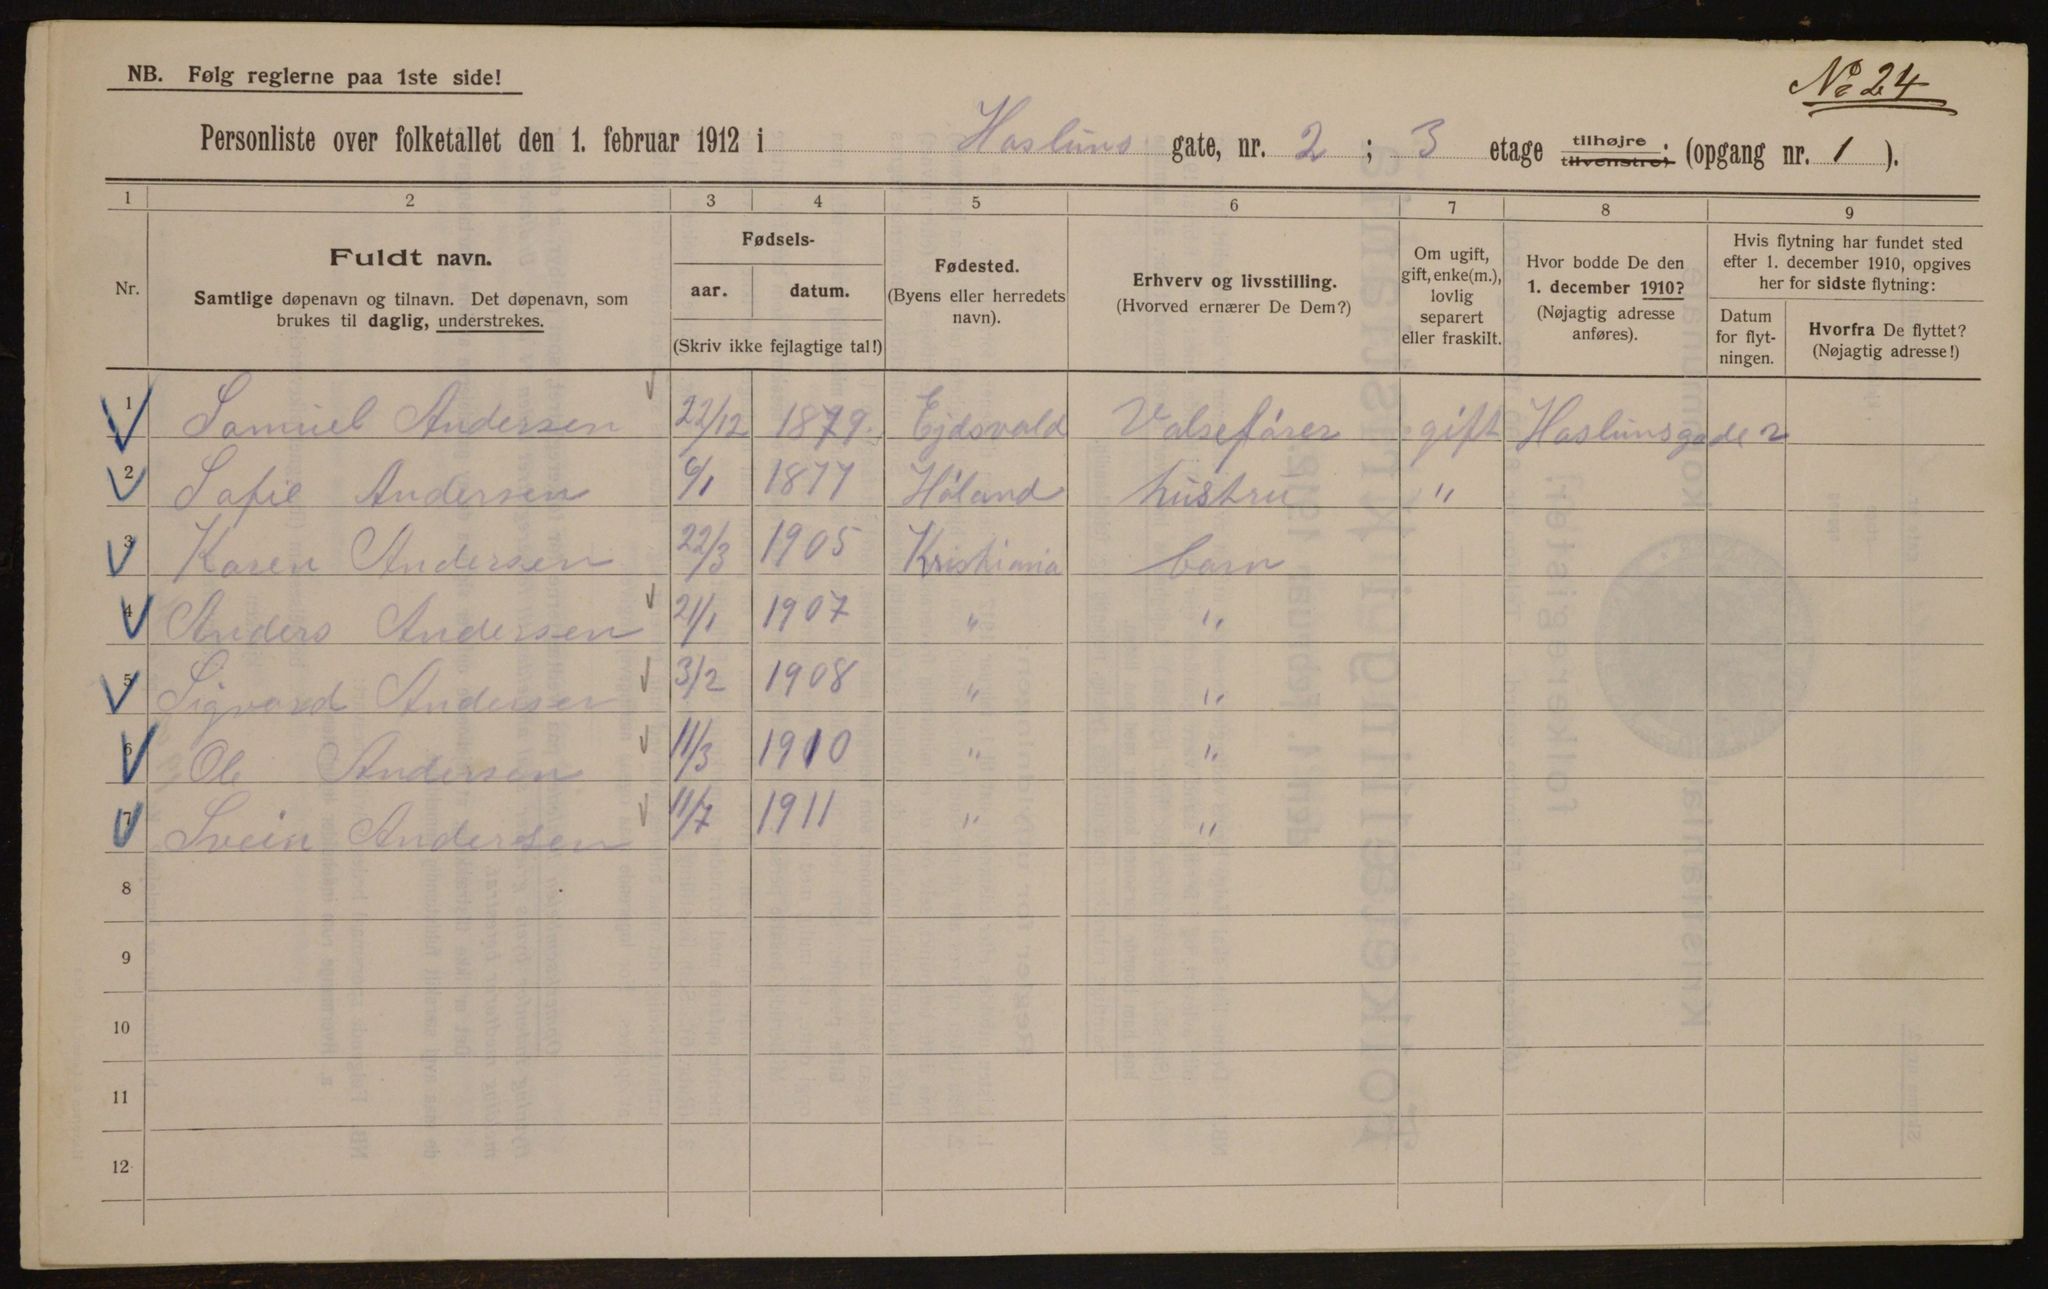 NB. Følg reglerne paa 1ste side!
No 24
Personliste over folketallet den 1. februar 1912 i Hasluns gate, nr. 2 ; 3 etage tilhøjre. tilvenstre) (opgang nr. 1 ).
1 2 3 4 5 6 7 8 9
Nr.
Fuldt navn.
Samtlige døpenavn og tilnavn. Det døpenavn, som
brukes til daglig, understrekes.
Fødsels-
aar. datum.
(Skriv ikke fejlagtige tal!)
Fødested.
(Byens eller herredets
navn).
Erhverv og livsstilling.
(Hvorved ernærer De Dem?)
Om ugift,
gift, enke(m.),
lovlig
separert
eller fraskilt.
Hvor bodde De den
1. december 1910?
(Nøjagtig adresse
anføres).
Hvis flytning har fundet sted
efter 1. december 1910, opgives
her for sidste flytning:
Datum
for flyt-
ningen.
Hvorfra De flyttet?
(Nøjagtig adresse!)
1 Samuel Andersen 22/12 1879. Ejdsvold Valsefører gift Haslunsgade 2
2 Sofie Andersen 6/1 1877 Høland hustru "
3 Karen Andersen 22/3 1905 Kristiania barn
4 Anders Andersen 21/1 1907 " "
5 Sigvard Andersen 3/2 1908 " "
6 Ole Andersen 11/3 1910 " "
7 Svein Andersen 11/7 1911 " "
8
9
10
11
12